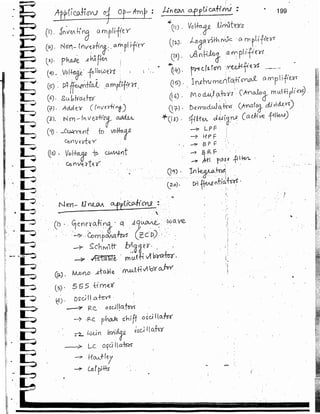 Application of OP-Amp : Linear applications :
199
(1). Inverting amplifier
(2). Non-Inverting amplifier
(3). phase shifter
(4). Voltage followers
(5). Differential amplifier
(6). Subtractor
(7). Adder (Inverting)
(8). Non-Inverting adder
(9). Current to voltage
converter
(10). Voltage to current
converter
(11). Voltage limiters
(12). Logarithmic amplifier
(13). Antilog amplifiers
(14). precision rectifiers
(15). Instrumentational amplifiers
(16). Modulators (Analog multiplier)
(17). Demodulators (Analog dividers)
(18). filters designs (active filters)
→ LPF
→ HPF
→ BPF
→ BRF
→ All pass filters
(19). Integrators
(20). Differentiators.
Non-linear applications :
(1). Generating a square wave
→ Comparators (ZCD)
→ Schmitt trigger
→ Astable multivibrator.
(2). Mono stable multivibrator
(3). 555 timer
(4). Oscillators
→ RC oscillators
→ RC phase shift oscillator
→ wein bridge oscillator
→ LC oscillators
→ Hartley
→ Colpitts